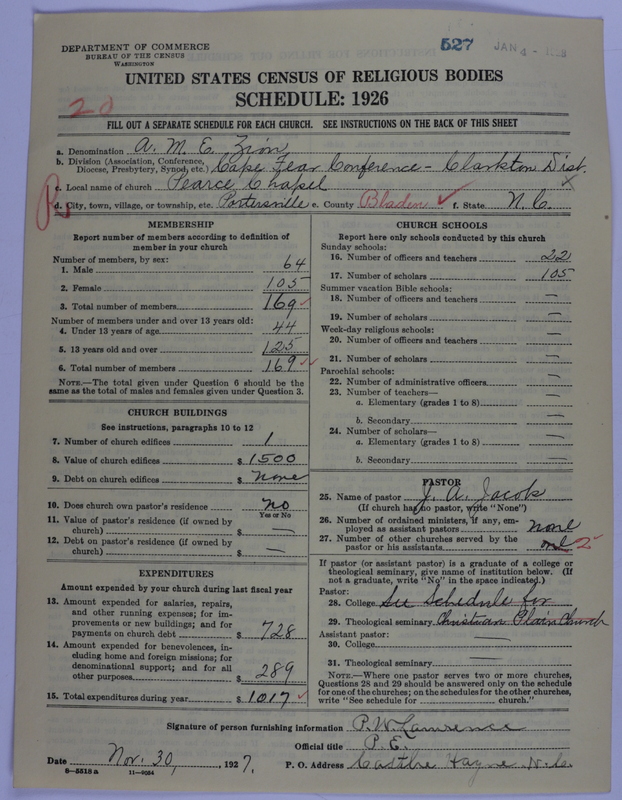 527 JAN 4 - 1928
DEPARTMENT OF COMMERCE
BUREAU OF THE CENSUS
WASHINGTON
UNITED STATES CENSUS OF RELIGIOUS BODIES
SCHEDULE: 1926
20
FILL OUT A SEPARATE SCHEDULE FOR EACH CHURCH. SEE INSTRUCTIONS ON THE BACK OF THIS SHEET
a. Denomination A. M. E. Zion
b. Division (Association, Conference, Diocese, Presbytery, Synod, etc.) Cape Fear Conference - Clarkton Dist.
c. Local name of church Pearce Chapel
d. City, town, village, or township, etc. Portersville e. County Bladen f. State N. C.
MEMBERSHIP
Report number of members according to definition of
member in your church
Number of members, by sex:
1. Male 64
2. Female 105
3. Total number of members 169
Number of members under and over 13 years old:
4. Under 13 years of age 44
5. 13 years old and over 125
6. Total number of members 169
NOTE.—The total given under Question 6 should be the
same as the total of males and females given under Question 3.
CHURCH BUILDINGS
See instructions, paragraphs 10 to 12
7. Number of church edifices 1
8. Value of church edifices $ 1500
9. Debt on church edifices $ none
10. Does church own pastor's residence? no
Yes or No
11. Value of pastor's residence (if owned by
church) $ —
12. Debt on pastor's residence (if owned by
church) $ —
EXPENDITURES
Amount expended by your church during last fiscal year
13. Amount expended for salaries, repairs,
and other running expenses; for im-
provements or new buildings; and for
payments on church debt $ 728
14. Amount expended for benevolences, in-
cluding home and foreign missions; for
denominational support; and for all
other purposes $ 289
15. Total expenditures during year $ 1017
CHURCH SCHOOLS
Report here only schools conducted by this church
Sunday schools:
16. Number of officers and teachers 22
17. Number of scholars 105
Summer vacation Bible schools:
18. Number of officers and teachers —
19. Number of scholars —
Week-day religious schools:
20. Number of officers and teachers —
21. Number of scholars —
Parochial schools:
22. Number of administrative officers —
23. Number of teachers—
a. Elementary (grades 1 to 8) —
b. Secondary —
24. Number of scholars—
a. Elementary (grades 1 to 8) —
b. Secondary —
PASTOR
25. Name of pastor J. A. Jacob
(If church has no pastor, write "None")
26. Number of ordained ministers, if any, em-
ployed as assistant pastors none
27. Number of other churches served by the
pastor or his assistants one 2
If pastor (or assistant pastor) is a graduate of a college or
theological seminary, give name of institution below. (If
not a graduate, write "No" in the space indicated.)
Pastor:
28. College See Schedule for
29. Theological seminary Christian Plain Church
Assistant pastor:
30. College —
31. Theological seminary —
NOTE.—Where one pastor serves two or more churches,
Questions 28 and 29 should be answered only on the schedule
for one of the churches; on the schedules for the other churches,
write "See schedule for church."
Signature of person furnishing information P. W. Lawrence
Official title P. E.
Date Nov. 30, 1927. P. O. Address Castle Hayne N. C.
8-5518 a 11-9034